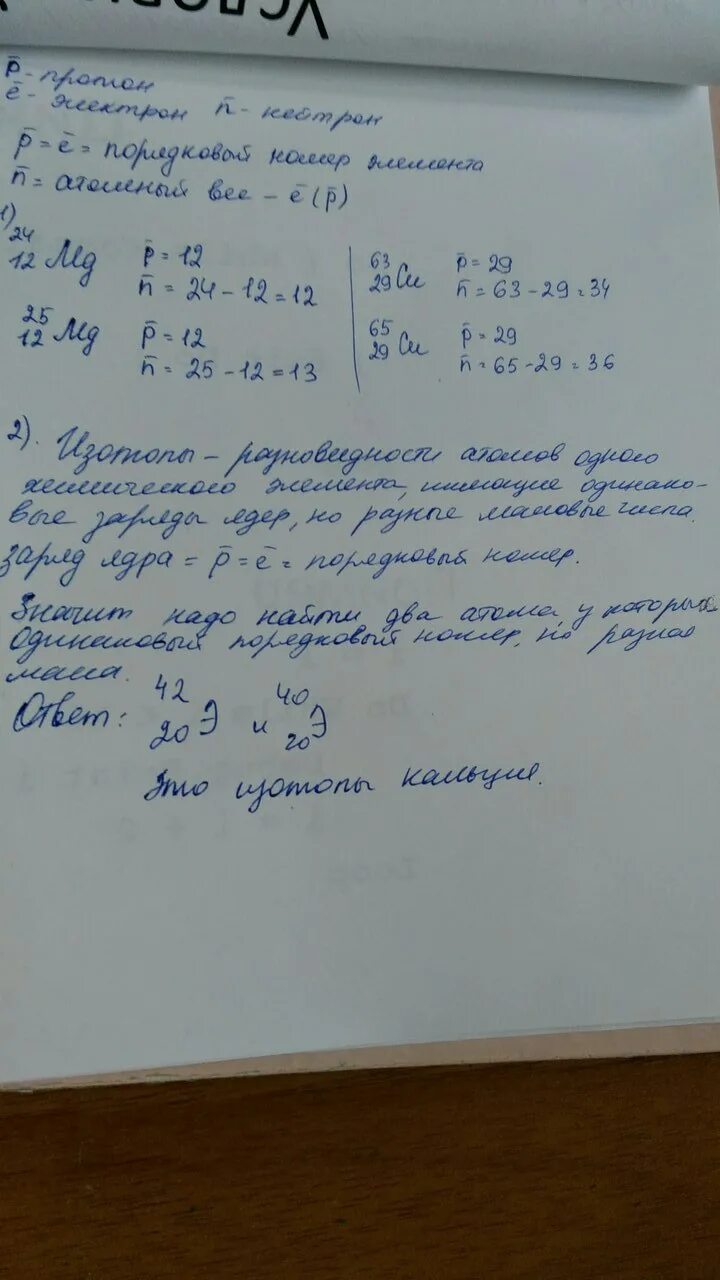 Услови
p̄ - протон
ē - электрон n̄ - нейтрон
p̄ = ē = порядковый номер элемента
n̄ = атомный вес - ē (p̄)
1)
24 12 Mg p̄ = 12 63 29 Cu p̄ = 29
n̄ = 24 - 12 = 12 n̄ = 63 - 29 = 34
25 12 Mg p̄ = 12 65 29 Cu p̄ = 29
n̄ = 25 - 12 = 13 n̄ = 65 - 29 = 36
2). Изотопы - разновидности атомов одного
химического элемента, имеющие одинако-
вые заряды ядер, но разные массовые числа.
Заряд ядра = p̄ = ē = порядковый номер.
Значит надо найти два атома, у которых
одинаковый порядковый номер, но разная
масса.
Ответ: 42 20 Э и 40 20 Э
Это изотопы кальция.